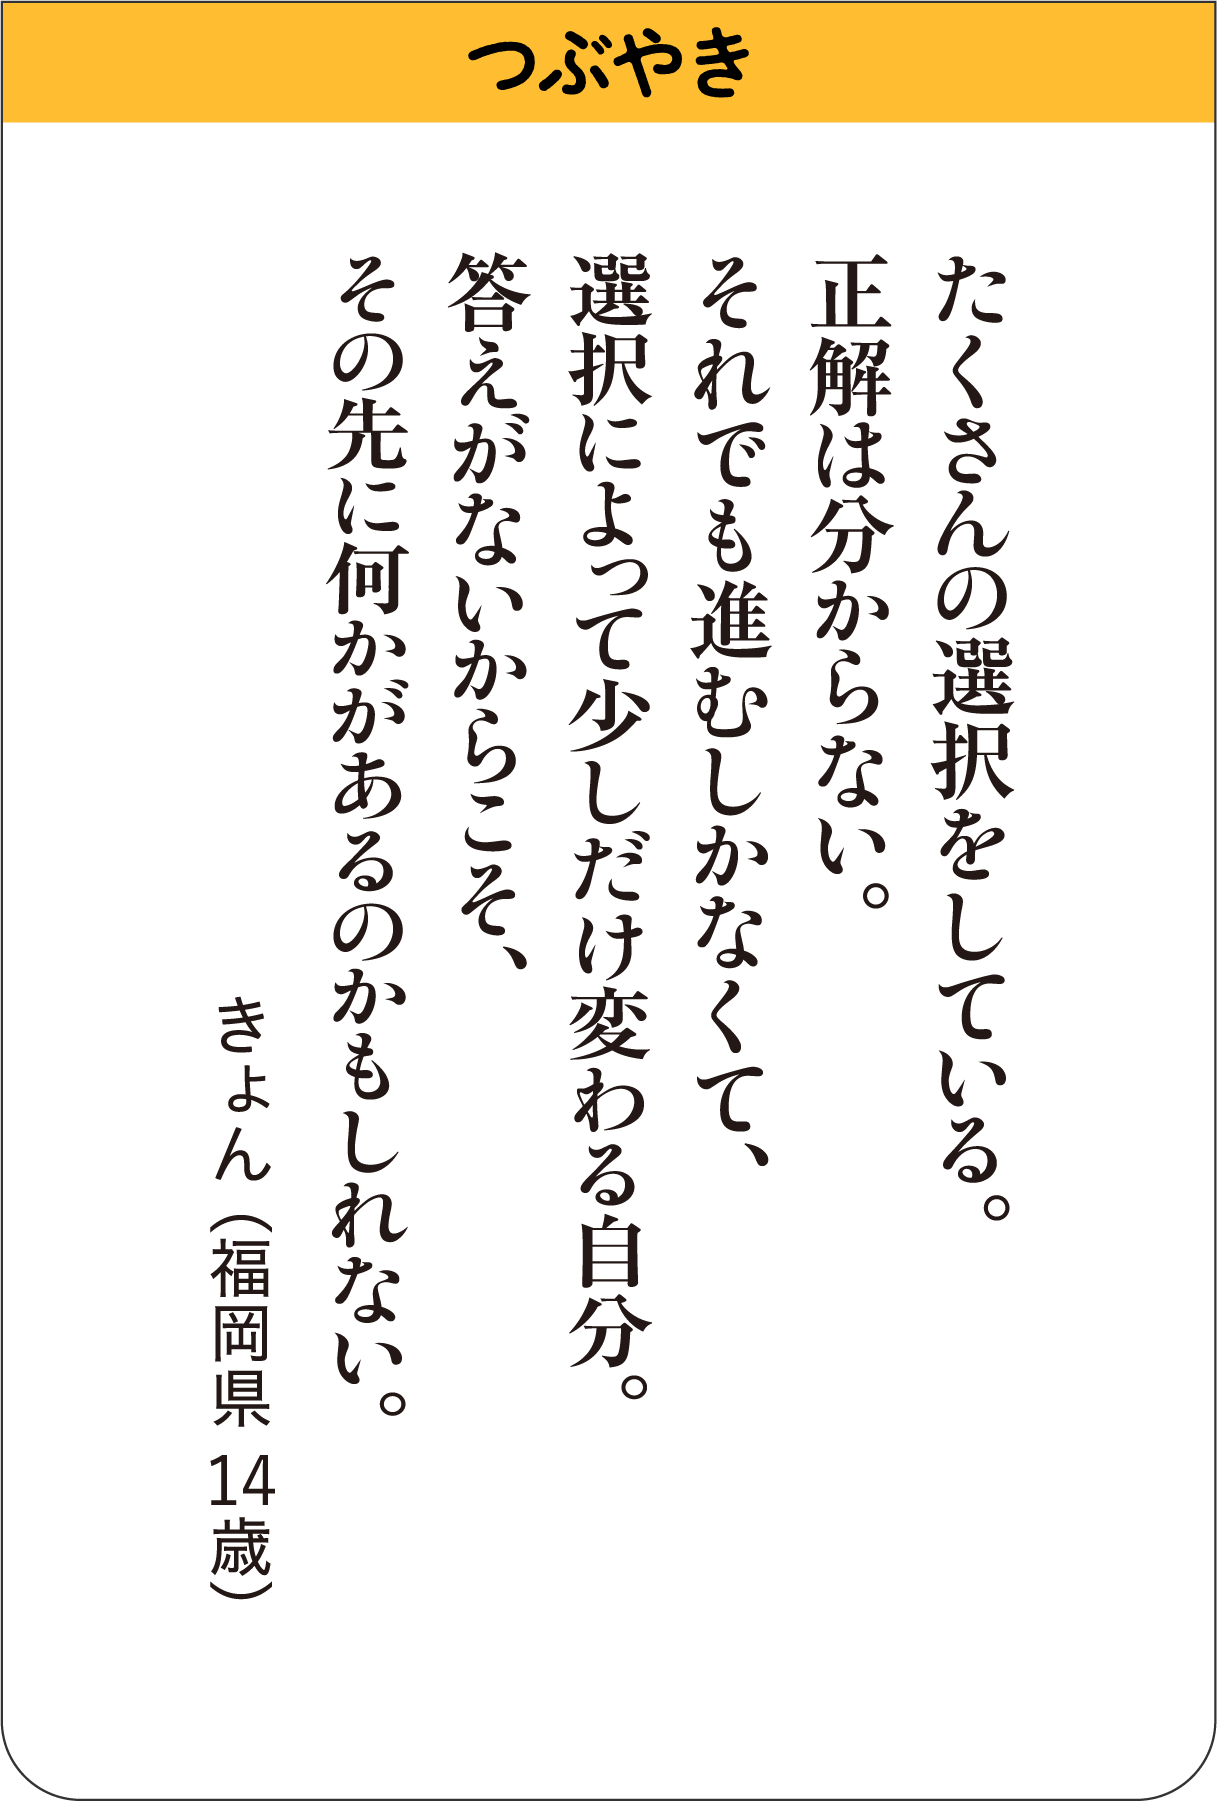 つぶやき
たくさんの選択をしている。
正解は分からない。
それでも進むしかなくて、
選択によって少しだけ変わる自分。
答えがないからこそ、
その先に何かがあるのかもしれない。
きょん（福岡県 14歳）